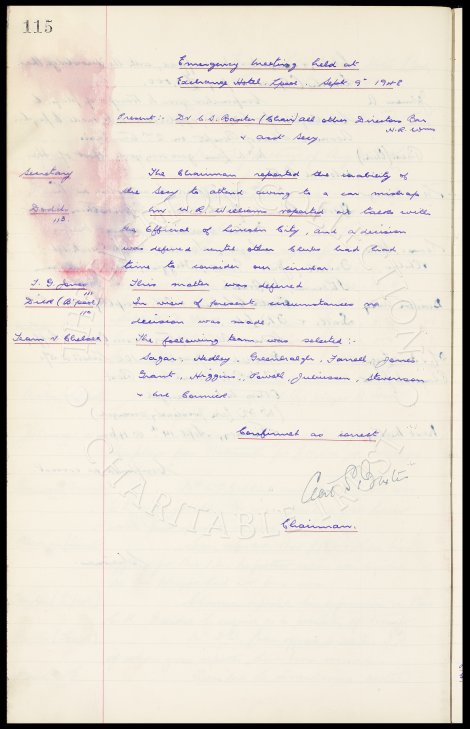 115
Emergency meeting held at
Exchange Hotel, L'pool, Sept. 9th 1948
Present:- Dr C.S. Baxter (Chair) all other Directors Bar
W.R. Wms
& asst Secy.
Secretary The Chairman reported the inability of
the Secy to attend owing to a car mishap
Dodds Mr. W.R. Williams reported on talks with
113 the Official of Lincoln City, and a decision
was deferred until other Clubs had had
time to consider our circular.
T. G. Jones This matter was deferred
111
Dixie (B'pool) In view of present circumstances no
110 decision was made
Team v Chelsea The following team was selected:-
Sagar, Hedley, Greenhalgh, Farrell, Jones
Grant, Higgins, Powell, Juliussen, Stevenson
& Boyes
Confirmed as correct
Chairman.
CHARITABLE TRUST